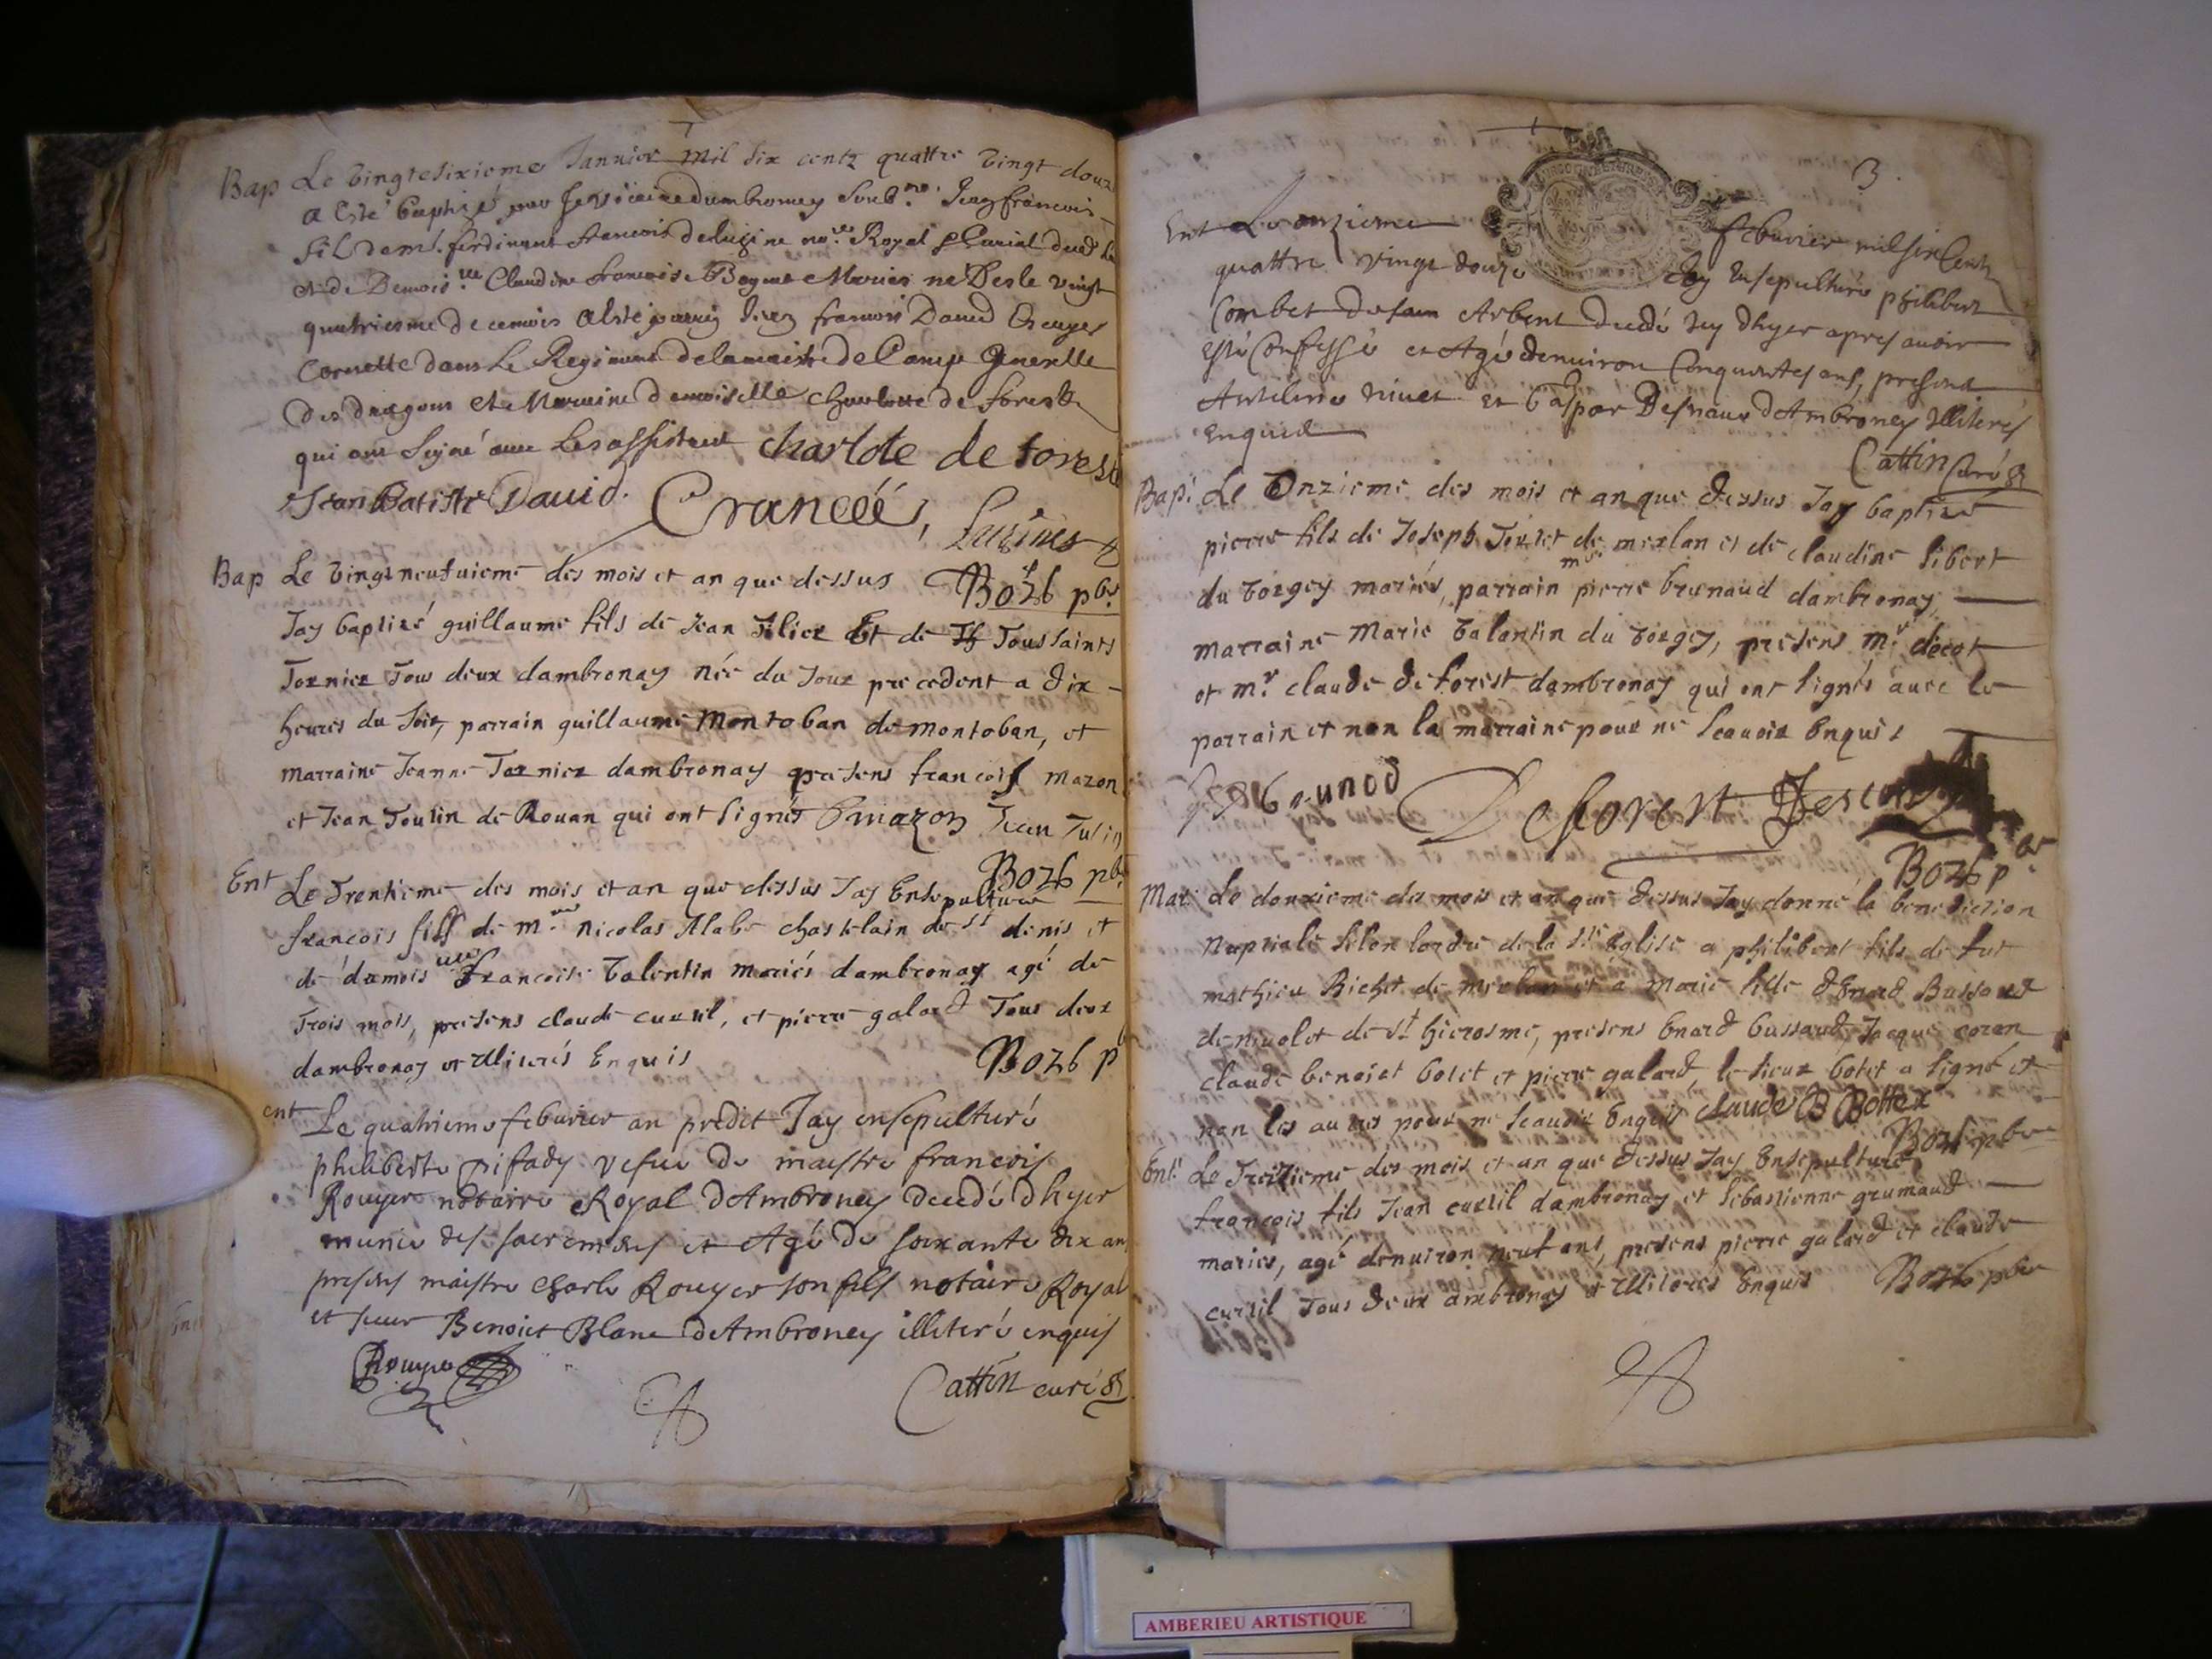 Bap Le vingtesixieme Jannier mil six centz quattre vingt douz
a esté baptizé par Je vicaire dambroney soub.né Jean francois
fil de mr. ferdinant francois de luizine no.re Royal
et de Demois.lle Claudine francoise mariés né Des le vingt
quatriesme de cemois a esté parrin Jean francois David Escuyer
Cornette dans Le Regiment de la maistre de Camp Generalle
des dragons et Maraine demoiselle charlotte de forest
qui ont signé avec les assistent charlote de forest
Jean Batiste David. Cranceé, Luzines
Bap Le vingtneufuieme des mois et an que dessus Bozb pbr.
Jay baptizé guillaume fils de Jean Et de Toussaints
Tornier Tous deux dambronay née du Jour precedent a dix
heures du soir, parrain guillaume montoban de montoban, et
marraine Jeanne Tornier dambronay presens francois mazon
et Jean Toulin de Rouan qui ont signés mazon Jean Tulin
Bozb pbr.
Ent Le Trentieme des mois et an que dessus Jay Ensepulturé
francois fils de m.re nicolas Alabe chastelain de st denis et
de damois.lle francoise valentin mariés dambronay agé de
Trois mois, presens claude curtil, et pierre galard Tous deux
dambronay et Illiterés Enquis Bozb p
ent Le quatrieme febvrier an predit Jay ensepulturé
philiberte pifady vefue de maistre francois
Rouyer notaire Royal dAmbroney decedé dhyer
munie des sacrements et Agé de soixante dix an
presens maistre charle Rouyer son fils notaire Royal
et sieur Benoict Blanc dAmbroney illiteré enquis
Rouyer Cattin curé
3.
Ent Le onzieme febvrier mil six Cent
quattre vingt douze Jay Ensepulturé philibert
Combet Arbent decedé dhyer apres avoir
esté Confessé et Agé denviron Cinquantes ans, presend
Antelme nivet et Gaspar Desnaux dAmbroney Illiterés
enquid
Cattin Curé
Bap. Le Onzieme des mois et an que dessus Jay baptizé
pierre fils de Joseph de merlan et de claudine sibert
du vorgey mariés, parrain mre pierre brunaud dambronay,
marraine Marie valantin du vorgey, presens mr. decot
et mr. claude deforest dambronay qui ont signés avec le
parrain et non la marraine pour ne scavoir Enquis
brunod Deforest Descot
Bozb pbr.
Mar. Le douzieme des mois et an que dessus Jay donné la benediction
Nuptiale selon lordre de la ste Eglise a philibert fils de fut
mathieu Richet de merlan et a marie fille dEnard Bussaud
de nivolet de st hierosme, presens Enard bussaud Jacque
claude benoist botet et pierre galard, le sieur botet a signé et
non les autres pour ne scavoir Enquis claude B Bottex
Bozb pbre
Ent. Le Treizieme des mois et an que dessus Jay Ensepulturé
francois fils Jean curtil dambronay et sebastienne grumaud
mariés, agé denviron neuf ans, presens pierre galard et claude
curtil Tous deux ambronay et Illiterés Enquis Bozb pbre
AMBERIEU ARTISTIQUE